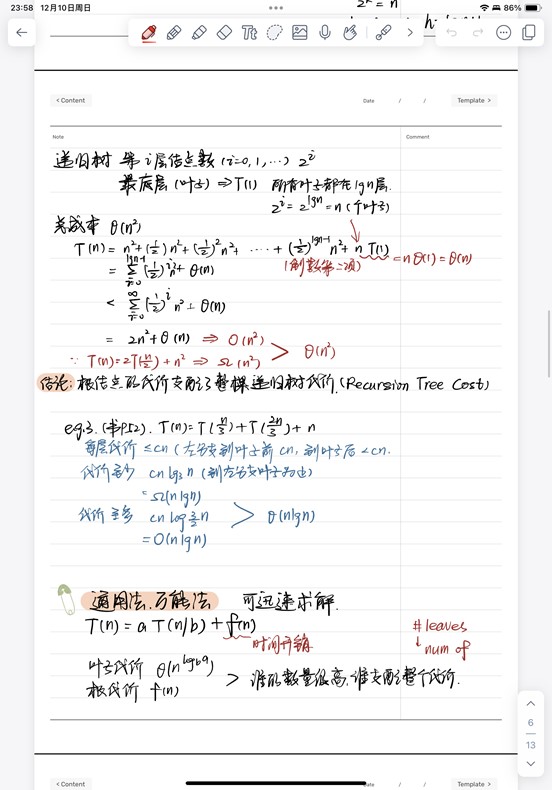 23:58 12月10日周日
86%
2ˣ = n
< Content
Date / /
Template >
Note
Comment
递归树 第 i 层结点数 (i=0, 1, …) 2ⁱ
最底层 (叶子) ⇒ T(1) 所有叶子都在 lgn 层.
2ⁱ = 2^lgn = n (个叶子)
总成本 θ(n²)
T(n) = n² + (1/2) n² + (1/2)² n² + ⋯⋯ + (1/2)^(lgn-1) n² + n T(1)
(倒数第二项) = nθ(1) = θ(n)
= Σ_(i=0)^(lgn-1) (1/2)ⁱ n² + θ(n)
< Σ_(i=0)^∞ (1/2)ⁱ n² + θ(n)
= 2n² + θ(n) ⇒ O(n²)
∵ T(n) = 2T(n/2) + n² ⇒ Ω(n²) > θ(n²)
结论: 根结点的代价支配了整棵递归树代价. (Recursion Tree Cost)
eg.3. (书P52). T(n) = T(n/3) + T(2n/3) + n
每层代价 ≤ cn (左分支到叶子前 cn, 到叶子后 < cn.
代价至少 cn log₃ n (到左分支叶子为止)
= Ω(n lgn)
代价至多 cn log_(3/2) n > θ(n lgn)
= O(n lgn)
通用法. 万能法 可迅速求解.
T(n) = a T(n/b) + f(n)
时间开销
# leaves
↓ num of
叶子代价 θ(n^(log_b a))
根代价 f(n) > 谁的数量级高, 谁支配了整个代价.
6
13
< Content
Date / /
Template >